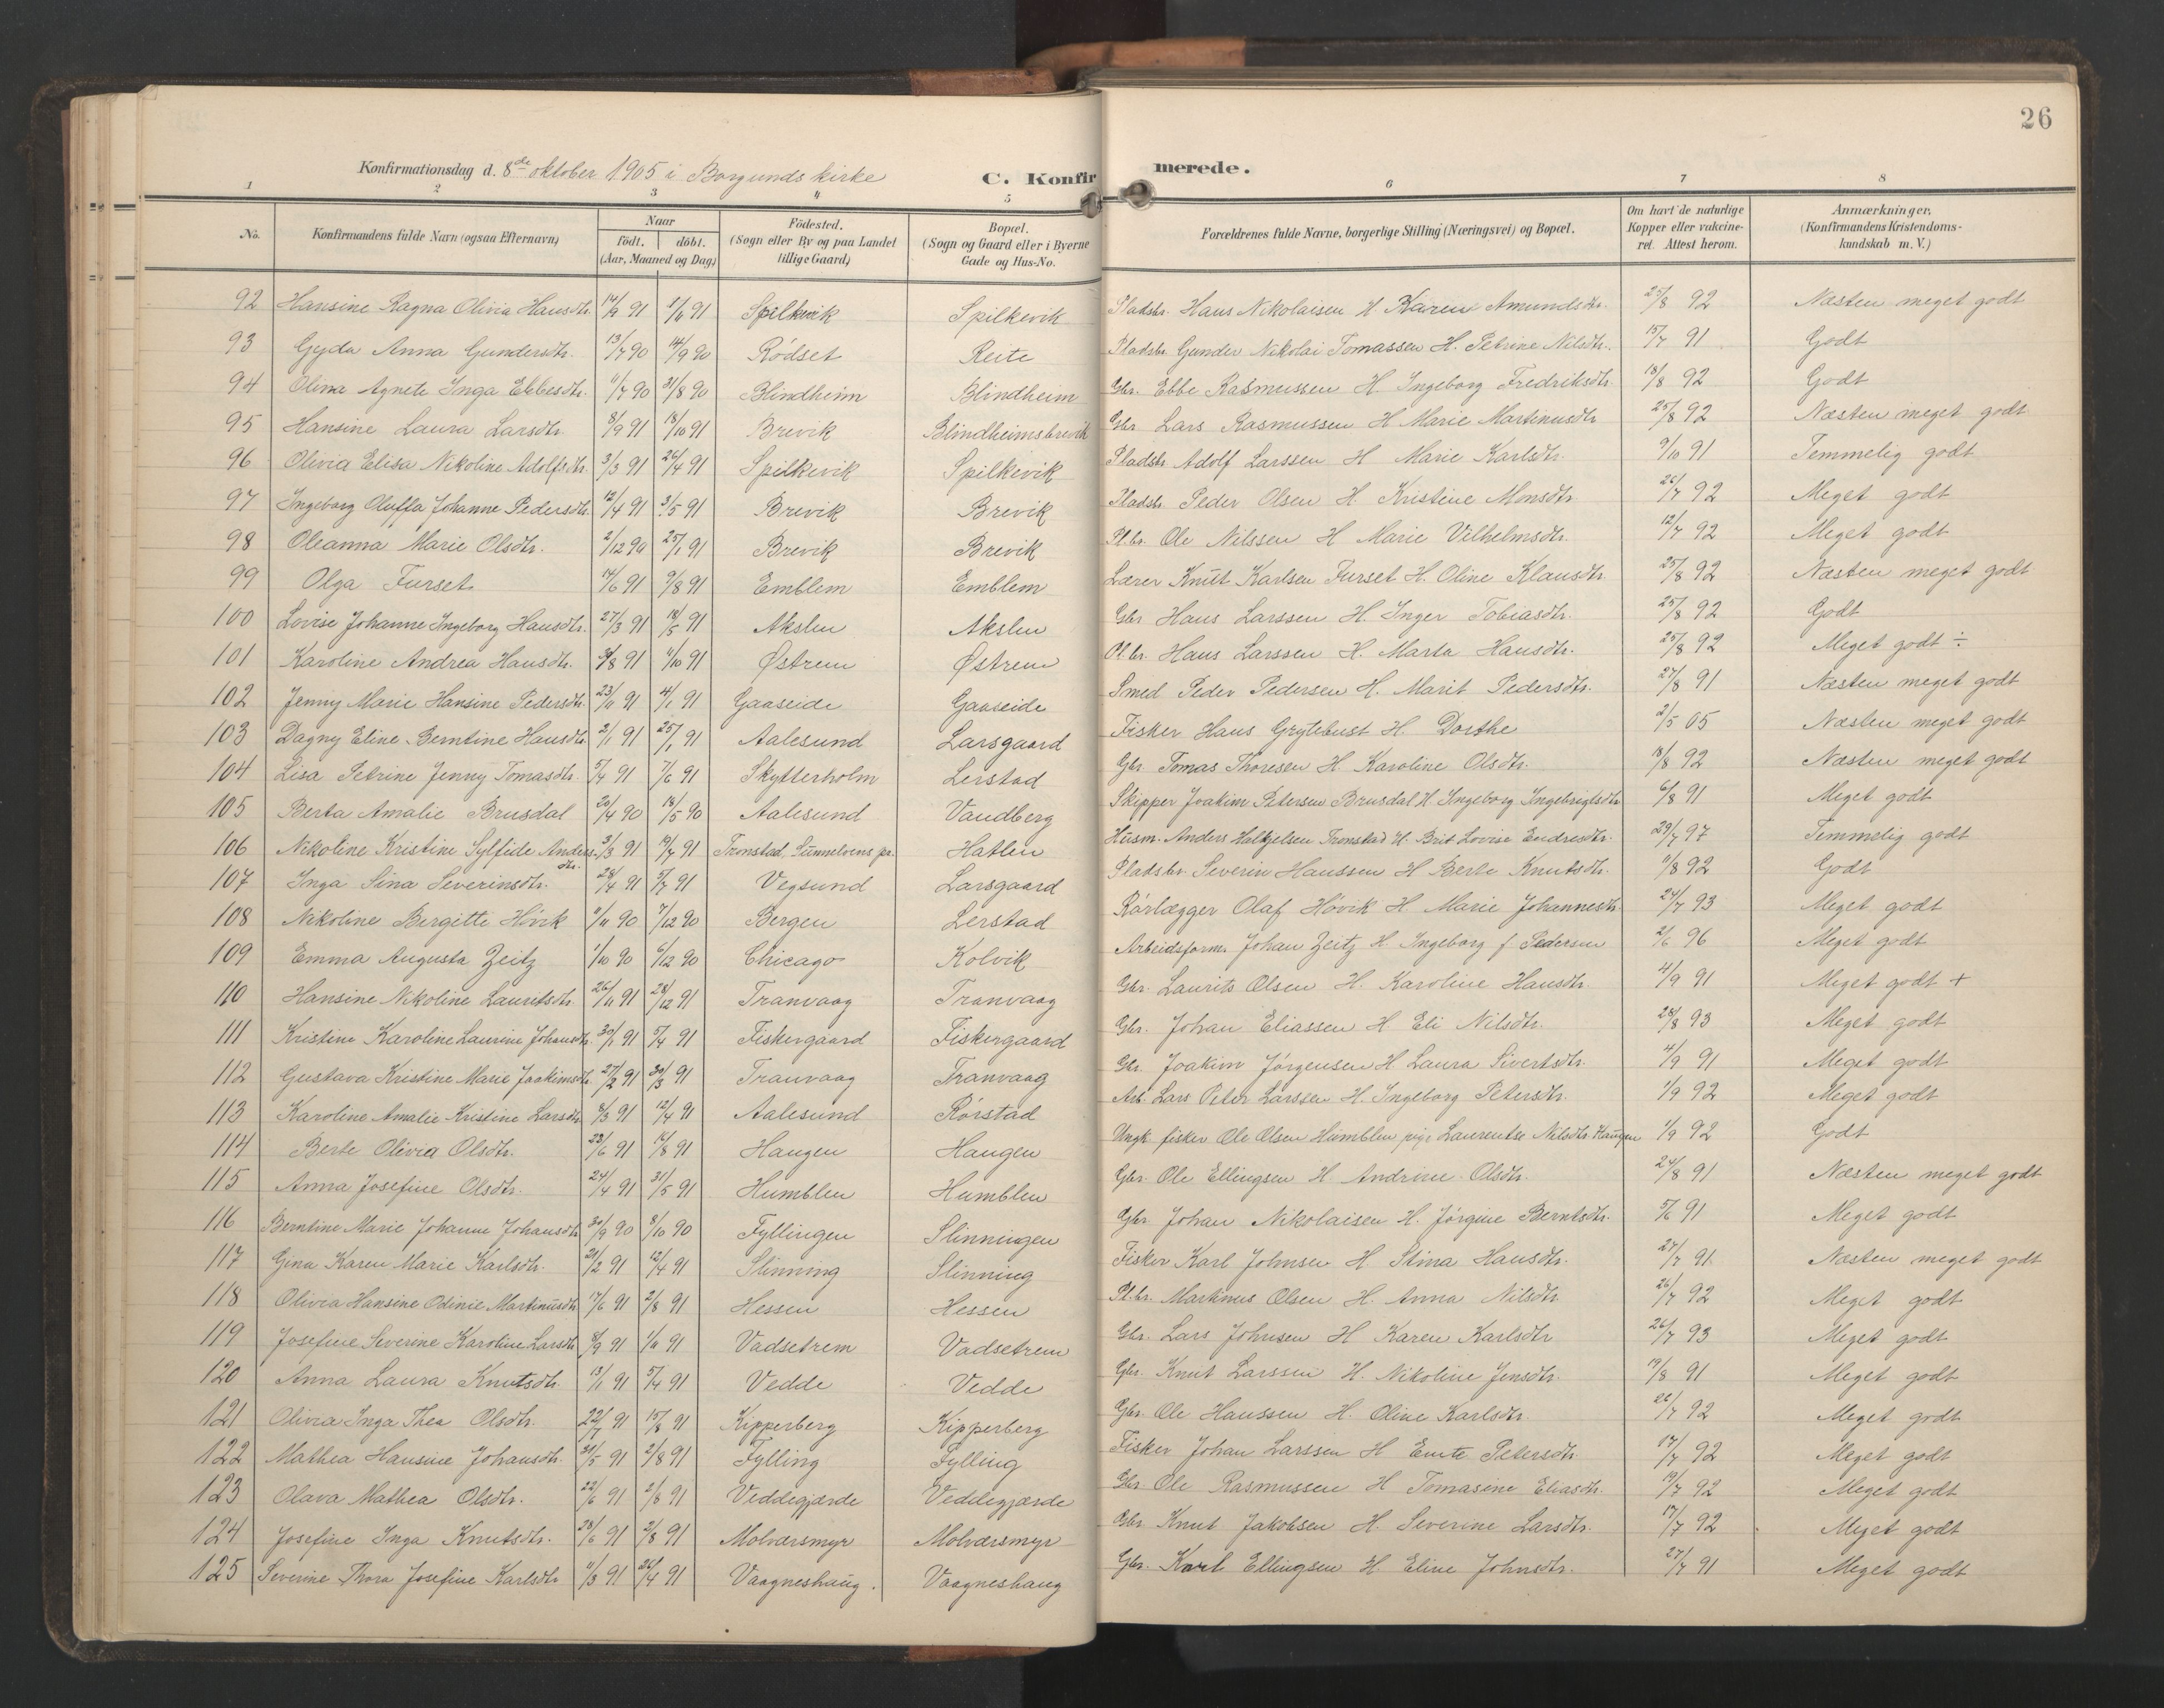 26
Konfirmationsdag d. 8de oktober 1905 i Borgunds kirke
C. Konfirmerede.
1 2 3 4 5 6 7 8
No. Konfirmandens fulde Navn (ogsaa Efternavn) Naar födt. döbt. (Aar, Maaned og Dag) Födested. (Sogn eller By og paa Landet tillige Gaard) Bopæl. (Sogn og Gaard eller i Byerne Gade og Hus-No. Forældrenes fulde Navne, borgerlige Stilling (Næringsvei) og Bopæl. Om havt de naturlige Kopper eller vakcineret. Attest herom. Anmærkninger. (Konfirmandens Kristendomskundskab m. V.)
92 Hansine Ragna Olivia Hansdtr. 14/9 91 1/11 91 Spilkevik Spilkevik Pladsbr. Hans Nikolaisen H. Karen Amundsdtr. 25/8 92 Næsten meget godt
93 Gyda Anna Gundersdtr. 13/7 90 14/9 90 Rödset Reite Pladsbr. Gunder Nikolai Tomassen H. Petrine Nilsdtr. 15/7 91 Godt
94 Olina Agnete Inga Ebbesdtr. 11/7 90 31/8 90 Blindheim Blindheim Gbr. Ebbe Rasmussen H Ingeborg Fredriksdtr. 18/8 92 Godt
95 Hansine Laura Larsdtr. 8/9 91 18/10 91 Brevik Blindheimsbrevik Gbr Lars Rasmussen H Marie Martinusdtr 25/8 92 Næsten meget godt
96 Olivia Elisa Nikoline Adolfsdtr. 3/3 91 26/4 91 Spilkevik Spilkevik Pladsbr. Adolf Larssen H Marie Karlsdtr. 9/10 91 Temmelig godt
97 Ingeborg Oluffa Johanne Pedersdtr. 12/4 91 3/5 91 Brevik Brevik Pladsbr. Peder Olsen H. Kristine Monsdtr 26/7 92 Meget godt
98 Oleanna Marie Olsdtr. 2/12 90 25/1 91 Brevik Brevik Pl.br. Ole Nilssen H Marie Vilhelmsdtr. 12/7 92 Meget godt
99 Olga Furset 14/6 91 9/8 91 Emblem Emblem Lærer Knut Karlsen Furset H. Oline Klausdtr 25/8 92 Næsten meget godt
100 Lovise Johanne Ingeborg Hansdtr. 27/3 91 18/5 91 Akslen Akslen Gbr Hans Larssen H. Inger Tobiasdtr. 25/8 92 Godt
101 Karoline Andrea Hansdtr. 3/8 91 11/10 91 Østrem Østrem Pl.br. Hans Larssen H. Marta Hansdtr. 25/8 92 Meget godt ÷
102 Jenny Marie Hansine Pedersdtr. 23/11 91 4/1 91 Gaaseide Gaaseide Smed Peder Pedersen H. Marit Pedersdtr. 27/8 91 Næsten meget godt
103 Dagny Eline Berntine Hansdtr 2/1 91 25/1 91 Aalesund Larsgaard Fisker Hans Grytebust H. Dorthe 2/5 05 Næsten meget godt
104 Lisa Petrine Jenny Tomasdtr. 5/4 91 7/6 91 Skytterholm Lerstad Gbr. Tomas Thoresen H. Karoline Olsdtr. 18/8 92 Næsten meget godt
105 Berta Amalie Brusdal 20/4 90 18/5 90 Aalesund Vandberg Skipper Joakim Petersen Brusdal H Ingeborg Ingebrigtsdtr 6/8 91 Meget godt
106 Nikoline Kristine Sylfide Andersdtr. 3/3 91 19/7 91 Tronstad, Sunnelvens pr. Hatlen Husm. Anders Halkjelsen Tronstad H. Brit Lovise Endresdtr. 29/7 97 Temmelig godt
107 Inga Sina Severinsdtr. 28/4 91 5/7 91 Vegsund Larsgaard Pladsbr. Severin Hanssen H Berte Knutsdtr. 9/8 92 Godt
108 Nikoline Bergitte Hövik 11/11 90 7/12 90 Bergen Lerstad Rörlægger Olaf Hövik H Marie Johannesdtr. 24/7 93 Meget godt
109 Emma Augusta Zeitz 1/10 90 6/12 90 Chicago Kolvik Arbeidsform. Johan Zeitz H. Ingeborg f Pedersen 2/6 96 Meget godt
110 Hansine Nikoline Lauritsdtr. 26/11 91 28/12 91 Tranvaag Tranvaag Gbr. Laurits Olsen H. Karoline Hansdtr. 4/9 91 Meget godt +
111 Kristine Karoline Laurine Johansdtr. 30/1 91 5/4 91 Fiskergaard Fiskergaard Gbr. Johan Eliassen H Eli Nilsdtr. 28/8 93 Meget godt
112 Gustava Kristine Marie Joakimsdtr. 27/2 91 30/3 91 Tranvaag Tranvaag Gbr. Joakim Jörgensen H Laura Sivertsdtr. 4/9 91 Meget godt
113 Karoline Amalie Kristine Larsdtr. 8/3 91 12/4 91 Aalesund Rörstad Arb. Lars Peter Larssen H. Ingeborg Petersdtr. 1/9 92 Meget godt
114 Berte Olivia Olsdtr. 23/6 91 16/8 91 Haugen Haugen Ungk. fisker Ole Olsen Humblen pige Laurentse Nilsdtr. Haugen 1/9 92 Godt
115 Anna Josefine Olsdtr. 24/4 91 31/5 91 Humblen Humblen Gbr. Ole Ellingsen H. Andrine Olsdtr. 24/8 91 Næsten meget godt
116 Berntine Marie Johanne Johansdtr 20/9 90 8/10 90 Fyllingen Slinningen Gbr. Johan Nikolaisen H. Jörgine Berntsdtr. 5/6 91 Meget godt
117 Gina Karen Marie Karlsdtr. 21/2 91 12/4 91 Slinning Slinning Fisker Karl Johnsen H Stina Hansdtr. 27/7 91 Næsten meget godt
118 Olivia Hansine Odinie Martinusdtr 17/6 91 2/8 91 Hessen Hessen Pl.br. Martinus Olsen H. Anna Nilsdtr 26/7 92 Meget godt
119 Josefine Severine Karoline Larsdtr 8/9 91 1/11 91 Vadsetrem Vadsetrem Gbr. Lars Johnsen H Karen Karlsdtr 26/7 93 Meget godt
120 Anna Laura Knutsdtr 13/1 91 5/4 91 Vedde Vedde Gbr. Knut Larssen H. Nikoline Jensdtr. 19/8 91 Meget godt
121 Olivia Inga Thea Olsdtr. 22/7 91 15/8 91 Kipperberg Kipperberg Gbr. Ole Hanssen H. Oline Karlsdtr. 26/7 92 Meget godt
122 Mathea Hansine Johansdtr. 21/5 91 2/8 91 Fylling Fylling Fisker Johan Larssen H Petersdtr. 17/7 92 Meget godt
123 Olava Mathea Olsdtr. 22/6 91 2/8 91 Veddegjærde Veddegjærde Gbr Ole Rasmussen H Tomasine Eliasdtr. 19/7 92 Meget godt
124 Josefine Inga Knutsdtr. 28/6 91 2/8 91 Molværsmyr Molværsmyr Gbr. Knut Jakobsen H. Severine Larsdtr. 17/7 92 Meget godt
125 Severine Thora Josefine Karlsdtr 11/3 91 26/4 91 Vaagneshaug. Vaagneshaug Gbr. Karl Ellingsen H Eline Johnsdtr. 27/7 91 Meget godt